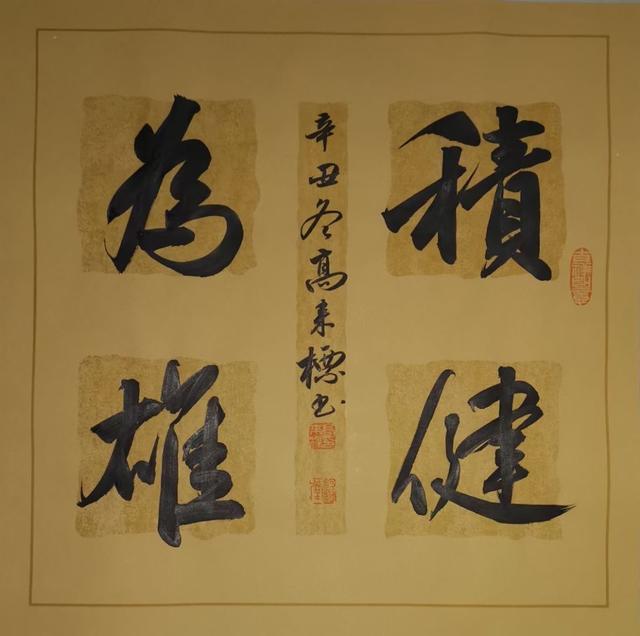 積健
為雄
辛丑冬高来標书